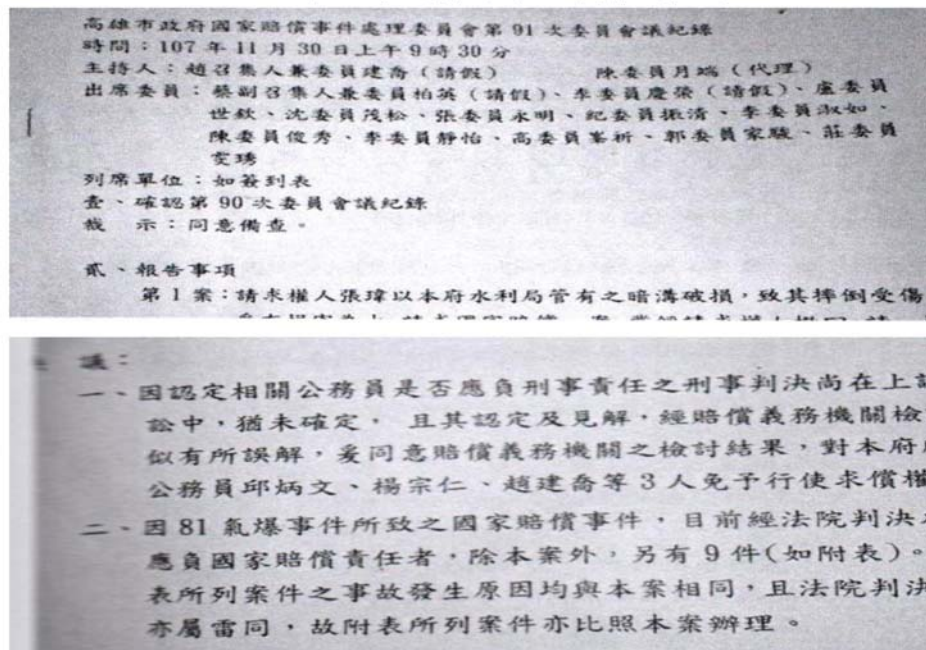 高雄市政府國家賠償事件處理委員會第91次委員會議紀錄
時間：107年11月30日上午9時30分
主持人：趙召集人兼委員建喬（請假） 陳委員月端（代理）
出席委員：蔡副召集人兼委員柏英（請假）、李委員慶榮（請假）、盧委員
世欽、沈委員茂松、張委員永明、紀委員振清、李委員淑如、
陳委員俊秀、李委員靜怡、高委員峯祈、郭委員家駿、莊委員
雯琇
列席單位：如簽到表
壹、確認第90次委員會議紀錄
裁 示：同意備查。
貳、報告事項
第1案：請求權人張瑋以本府水利局管有之暗溝破損，致其摔倒受傷
議：
一、因認定相關公務員是否應負刑事責任之刑事判決尚在上訴
訟中，猶未確定， 且其認定及見解，經賠償義務機關檢
似有所誤解，爰同意賠償義務機關之檢討結果，對本府
公務員邱炳文、楊宗仁、趙建喬等3人免予行使求償權
二、因81氣爆事件所致之國家賠償事件，目前經法院判決
應負國家賠償責任者，除本案外，另有9件(如附表)。
表所列案件之事故發生原因均與本案相同，且法院判決
亦屬雷同，故附表所列案件亦比照本案辦理。